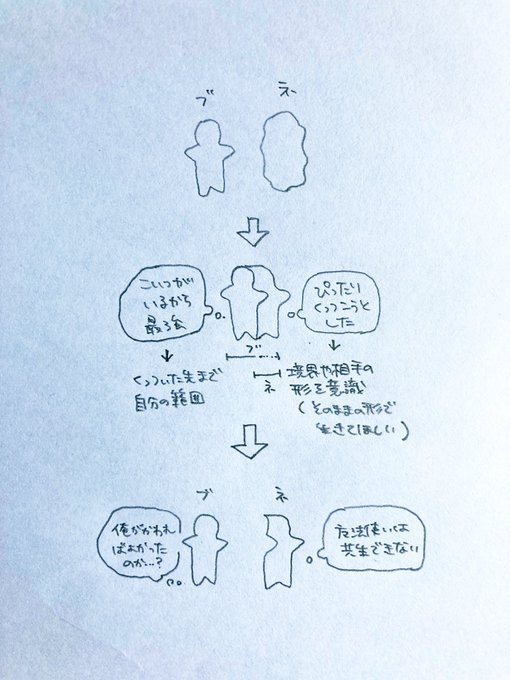 ブ
ネ
こいつが
いるから
最強
ぴったり
くっつこうと
した
ブ
ネ
くっついた先まで
自分の範囲
境界や相手の
形を意識
(そのままの形で
生きてほしい)
ブ
ネ
俺がかわれ
ばよかった
のか…?
魔法使いは
共生できない